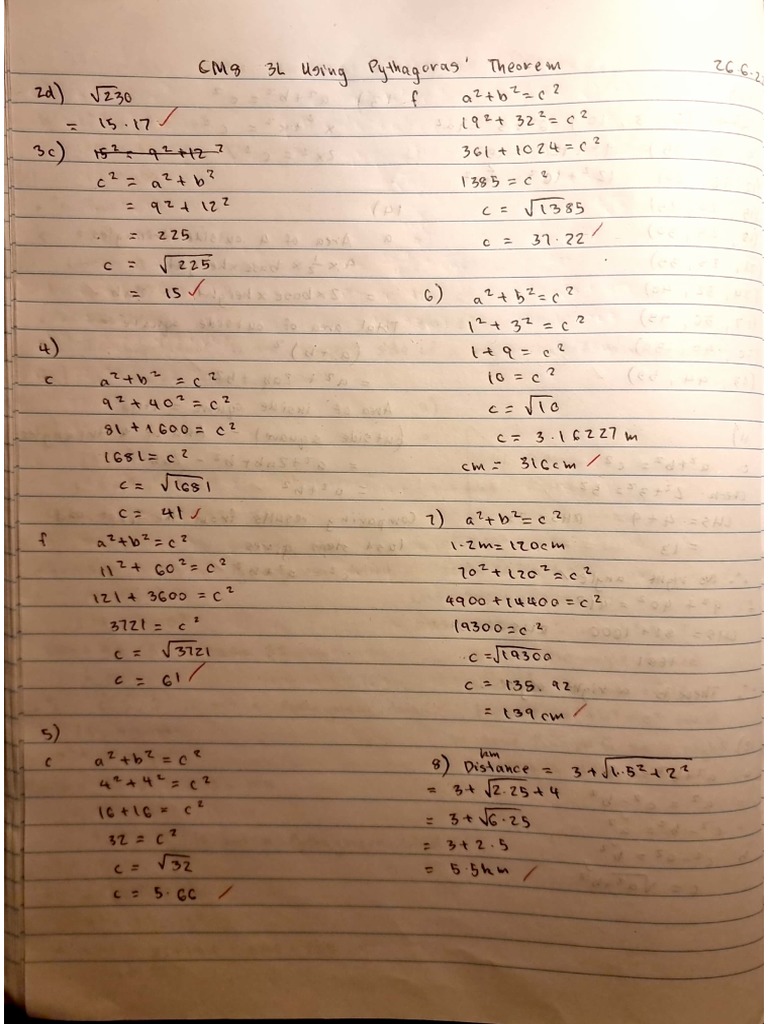 CM8 3L Using Pythagoras' Theorem 26.6.2
2d) √230
= 15.17 ✓
3c) 15² = 9² + 12²
c² = a² + b²
= 9² + 12²
= 225
c = √225
= 15 ✓
4)
c a² + b² = c²
9² + 40² = c²
81 + 1600 = c²
1681 = c²
c = √1681
c = 41 ✓
f a² + b² = c²
11² + 60² = c²
121 + 3600 = c²
3721 = c²
c = √3721
c = 61 ✓
5)
c a² + b² = c²
4² + 4² = c²
16 + 16 = c²
32 = c²
c = √32
c = 5.66 ✓
f a² + b² = c²
19² + 32² = c²
361 + 1024 = c²
1385 = c²
c = √1385
c = 37.22 ✓
6) a² + b² = c²
1² + 3² = c²
1 + 9 = c²
10 = c²
c = √10
c = 3.16227 m
cm = 316cm ✓
7) a² + b² = c²
1.2m = 120cm
70² + 120² = c²
4900 + 14400 = c²
19300 = c²
c = √19300
c = 138.92
= 139 cm ✓
km
8) Distance = 3 + √1.5² + 2²
= 3 + √2.25 + 4
= 3 + √6.25
= 3 + 2.5
= 5.5km ✓